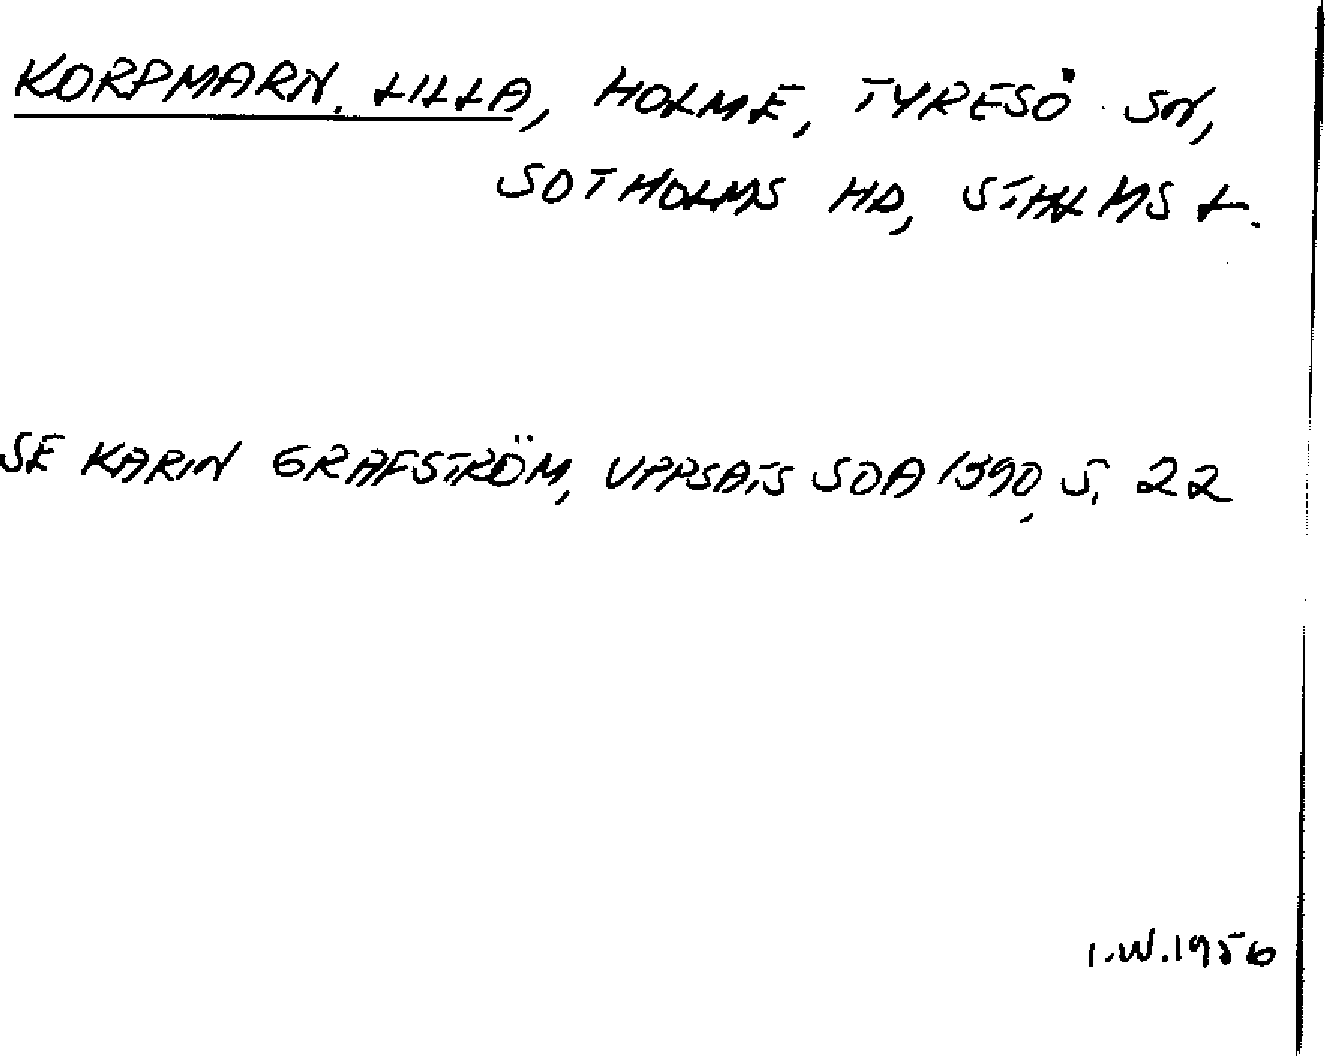 KORPMARN, LILLA, HOLME, TYRESÖ SN,
SOTHOLMS HD, STHLMS L.
SE KARIN GRAFSTRÖM, UPPSATS SOA 1390, S. 22
I.W.1956